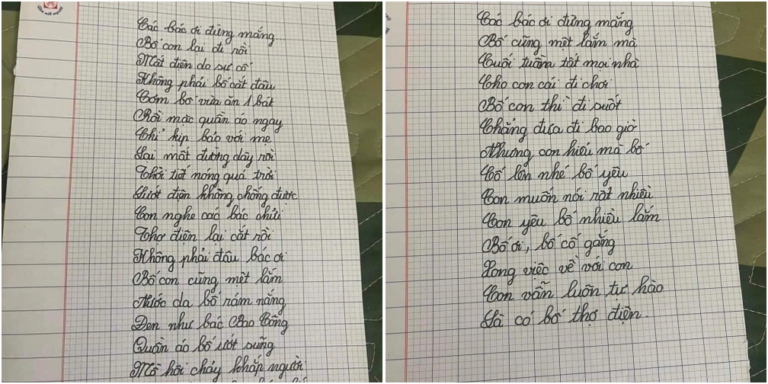 Các bác ơi đừng mắng
Bố con lại đi rồi
Mất điện do sự cố
Không phải bố cắt đâu
Cơm bố vừa ăn 1 bát
Rồi mặc quần áo ngay
Chỉ kịp bảo với mẹ
Lại mất đường dây rồi
Thời tiết nóng quá trời
Lưới điện không chống được
Con nghe các bác chửi
Thợ điện lại cắt rồi
Không phải đâu bác ơi
Bố con cũng mệt lắm
Nước da bố rám nắng
Đen như bác Bao Công
Quần áo bố ướt sũng
Mồ hôi chảy khắp người
Các bác ơi đừng mắng
Bố cũng mệt lắm mà
Cuối tuần tất mọi nhà
Cho con cái đi chơi
Bố con thì đi suốt
Chẳng đưa đi bao giờ
Nhưng con hiểu mà bố
Cố lên nhé bố yêu
Con muốn nói rất nhiều
Con yêu bố nhiều lắm
Bố ơi, bố cố gắng
Xong việc về với con
Con vẫn luôn tự hào
Là có bố thợ điện.